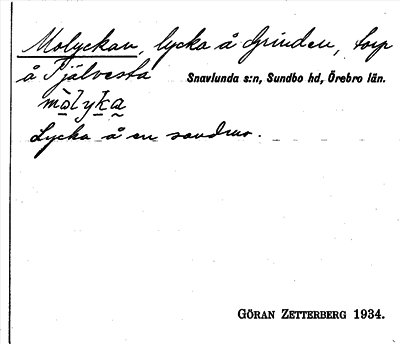 Molyckan, lycka å Grinden, torp
å Tjälvesta Snavlunda s:n, Sundbo hd, Örebro län.
mòlyka
Lycka å en sandmo.
GÖRAN ZETTERBERG 1934.